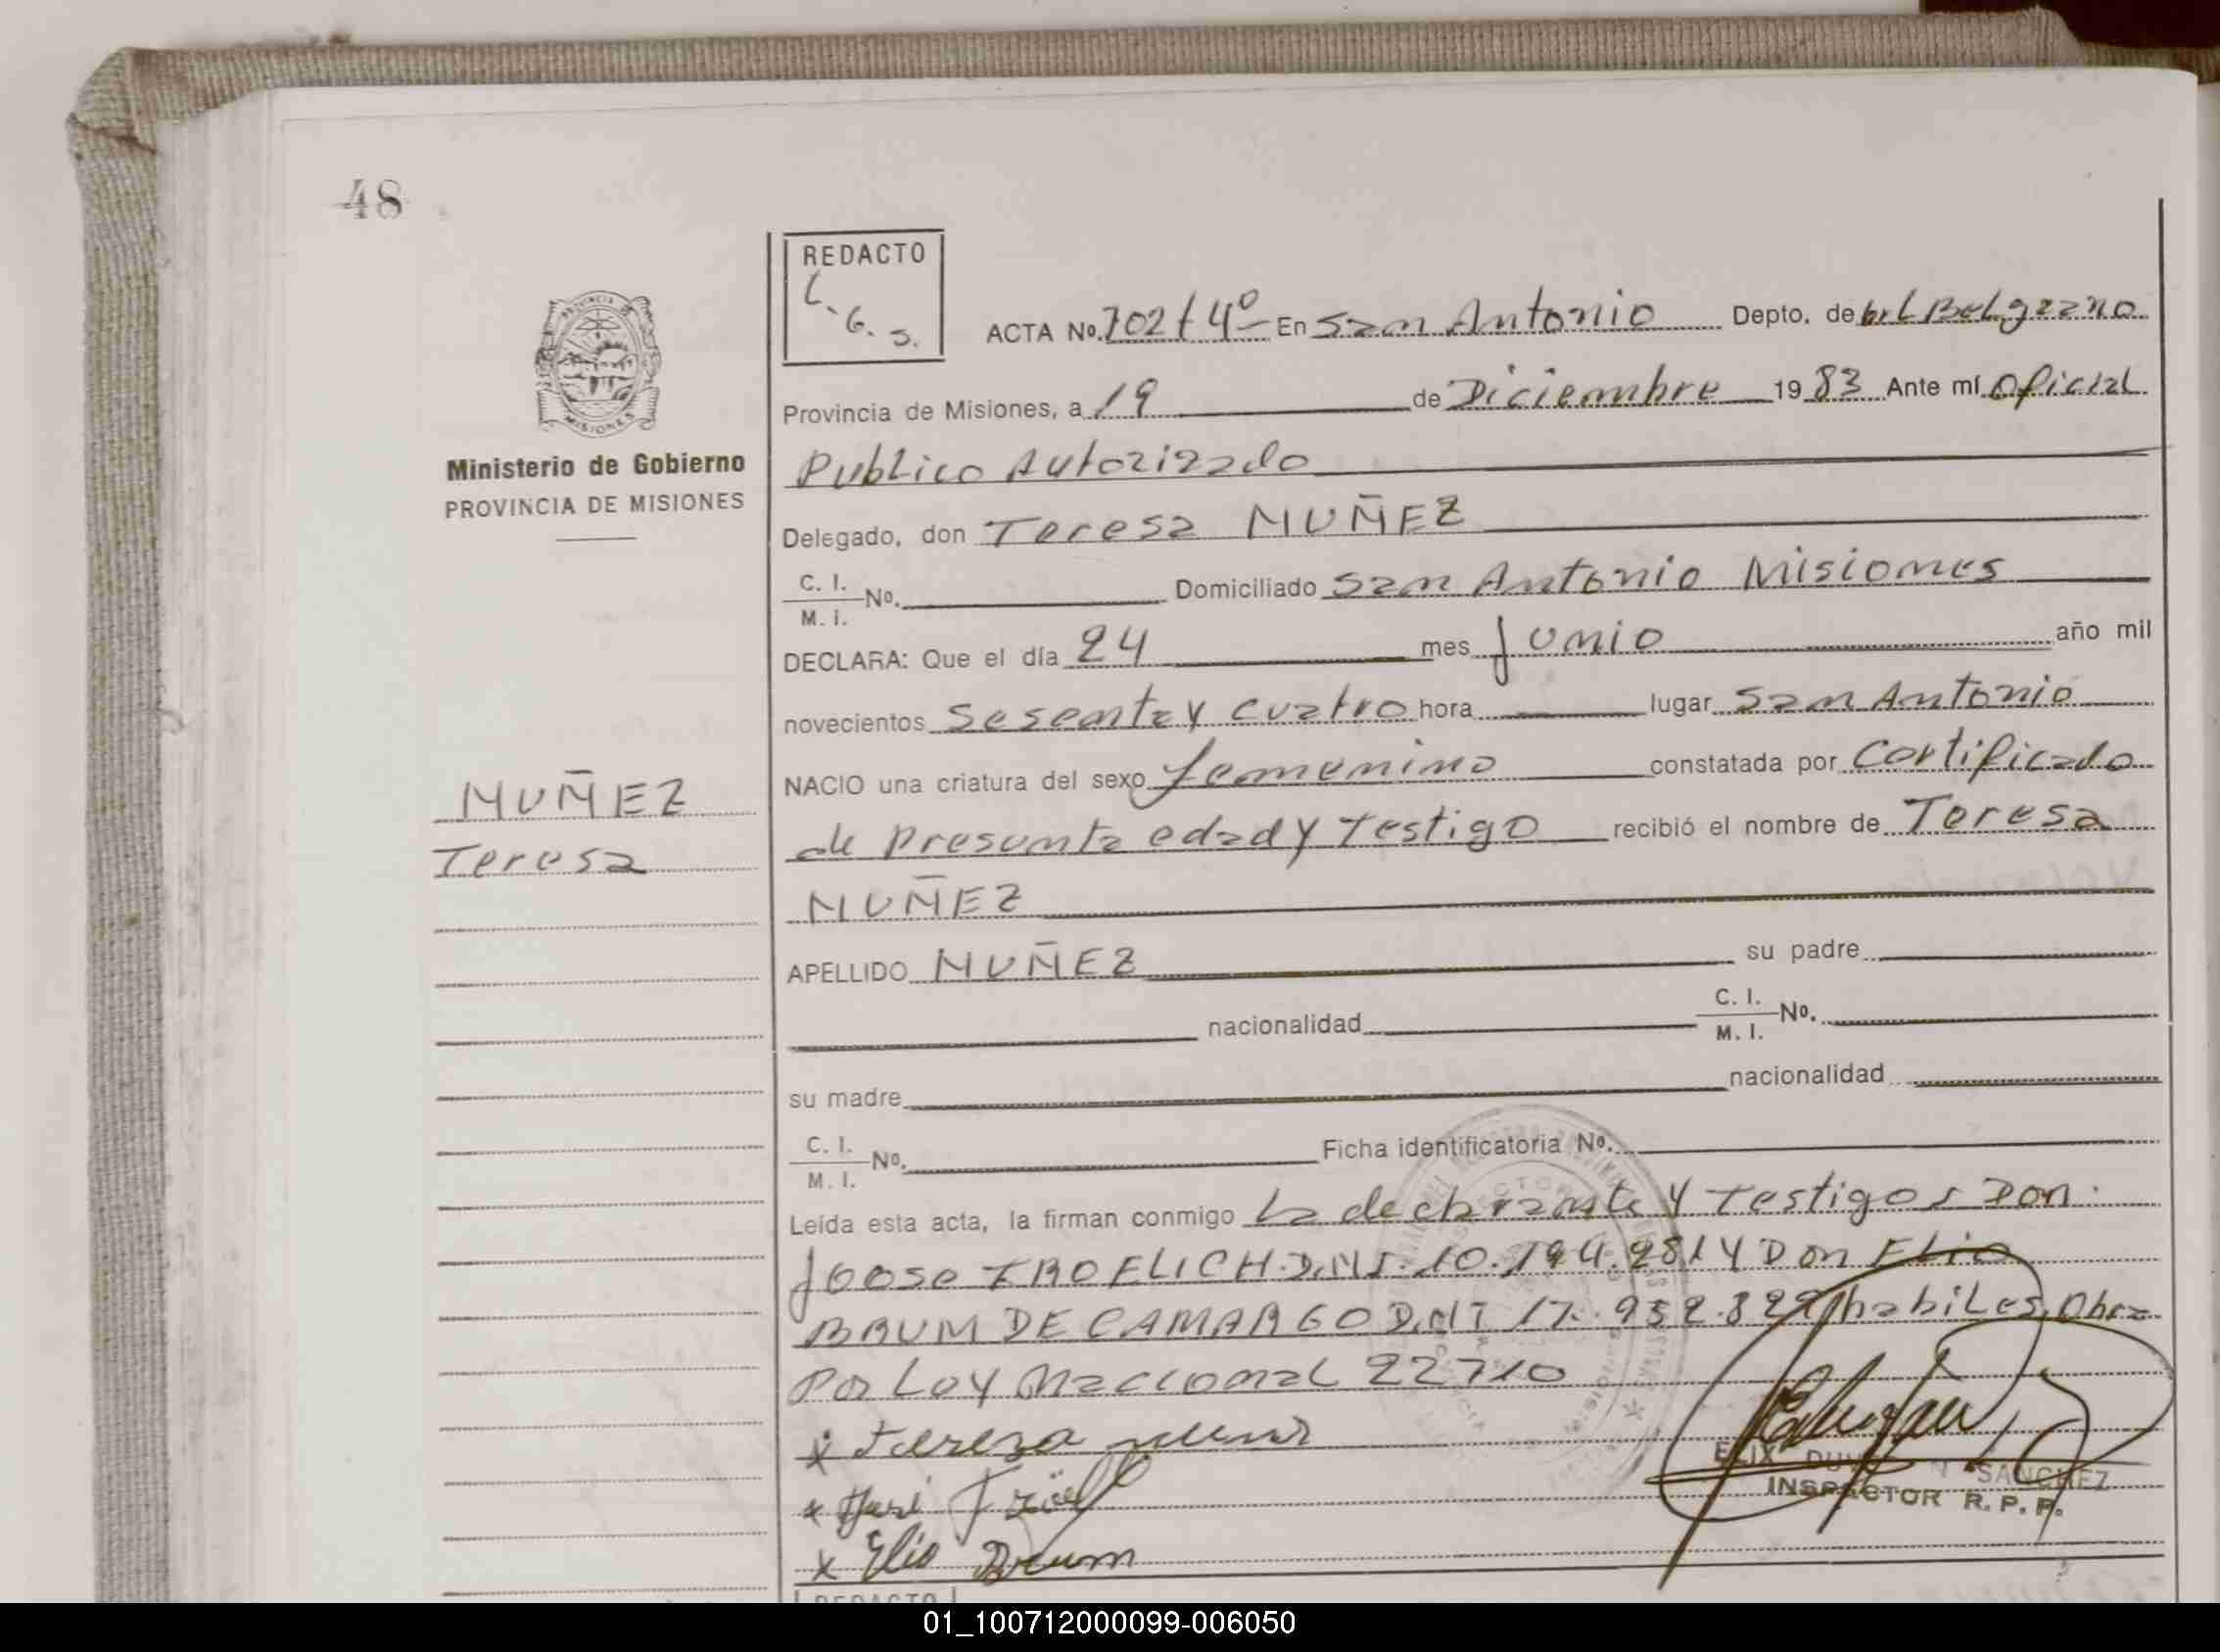 48
REDACTO
L. G. S.
ACTA No. 702 t 4º En San Antonio Depto. de Grl Belgrano
Provincia de Misiones, a 19 de Diciembre 19 83 Ante mí Oficial
Publico Autorizado
Ministerio de Gobierno
PROVINCIA DE MISIONES
Delegado, don Teresa MUÑEZ
C. I.
M. I. No. Domiciliado San Antonio Misiones
DECLARA: Que el día 24 mes Junio año mil
novecientos Sesenta y cuatro hora lugar San Antonio
NACIO una criatura del sexo femenino constatada por Certificado
de Presunta edad y Testigo recibió el nombre de Teresa
MUÑEZ
MUÑEZ
Teresa
APELLIDO MUÑEZ su padre
nacionalidad C. I.
M. I. No.
su madre nacionalidad
C. I.
M. I. No. Ficha identificatoria No.
Leída esta acta, la firman conmigo La declarante y Testigos Don
Joose FROELICH D.N.I. 10.194.281 y Don Elio
BRUM DE CAMARGO D.N.I 17.952.829 habiles, Obra
Por Ley Nacional 22710
x Tereza
x
x Elio Brum
SANCHEZ
INSPECTOR R. P. P.
REDACTO
01_100712000099-006050